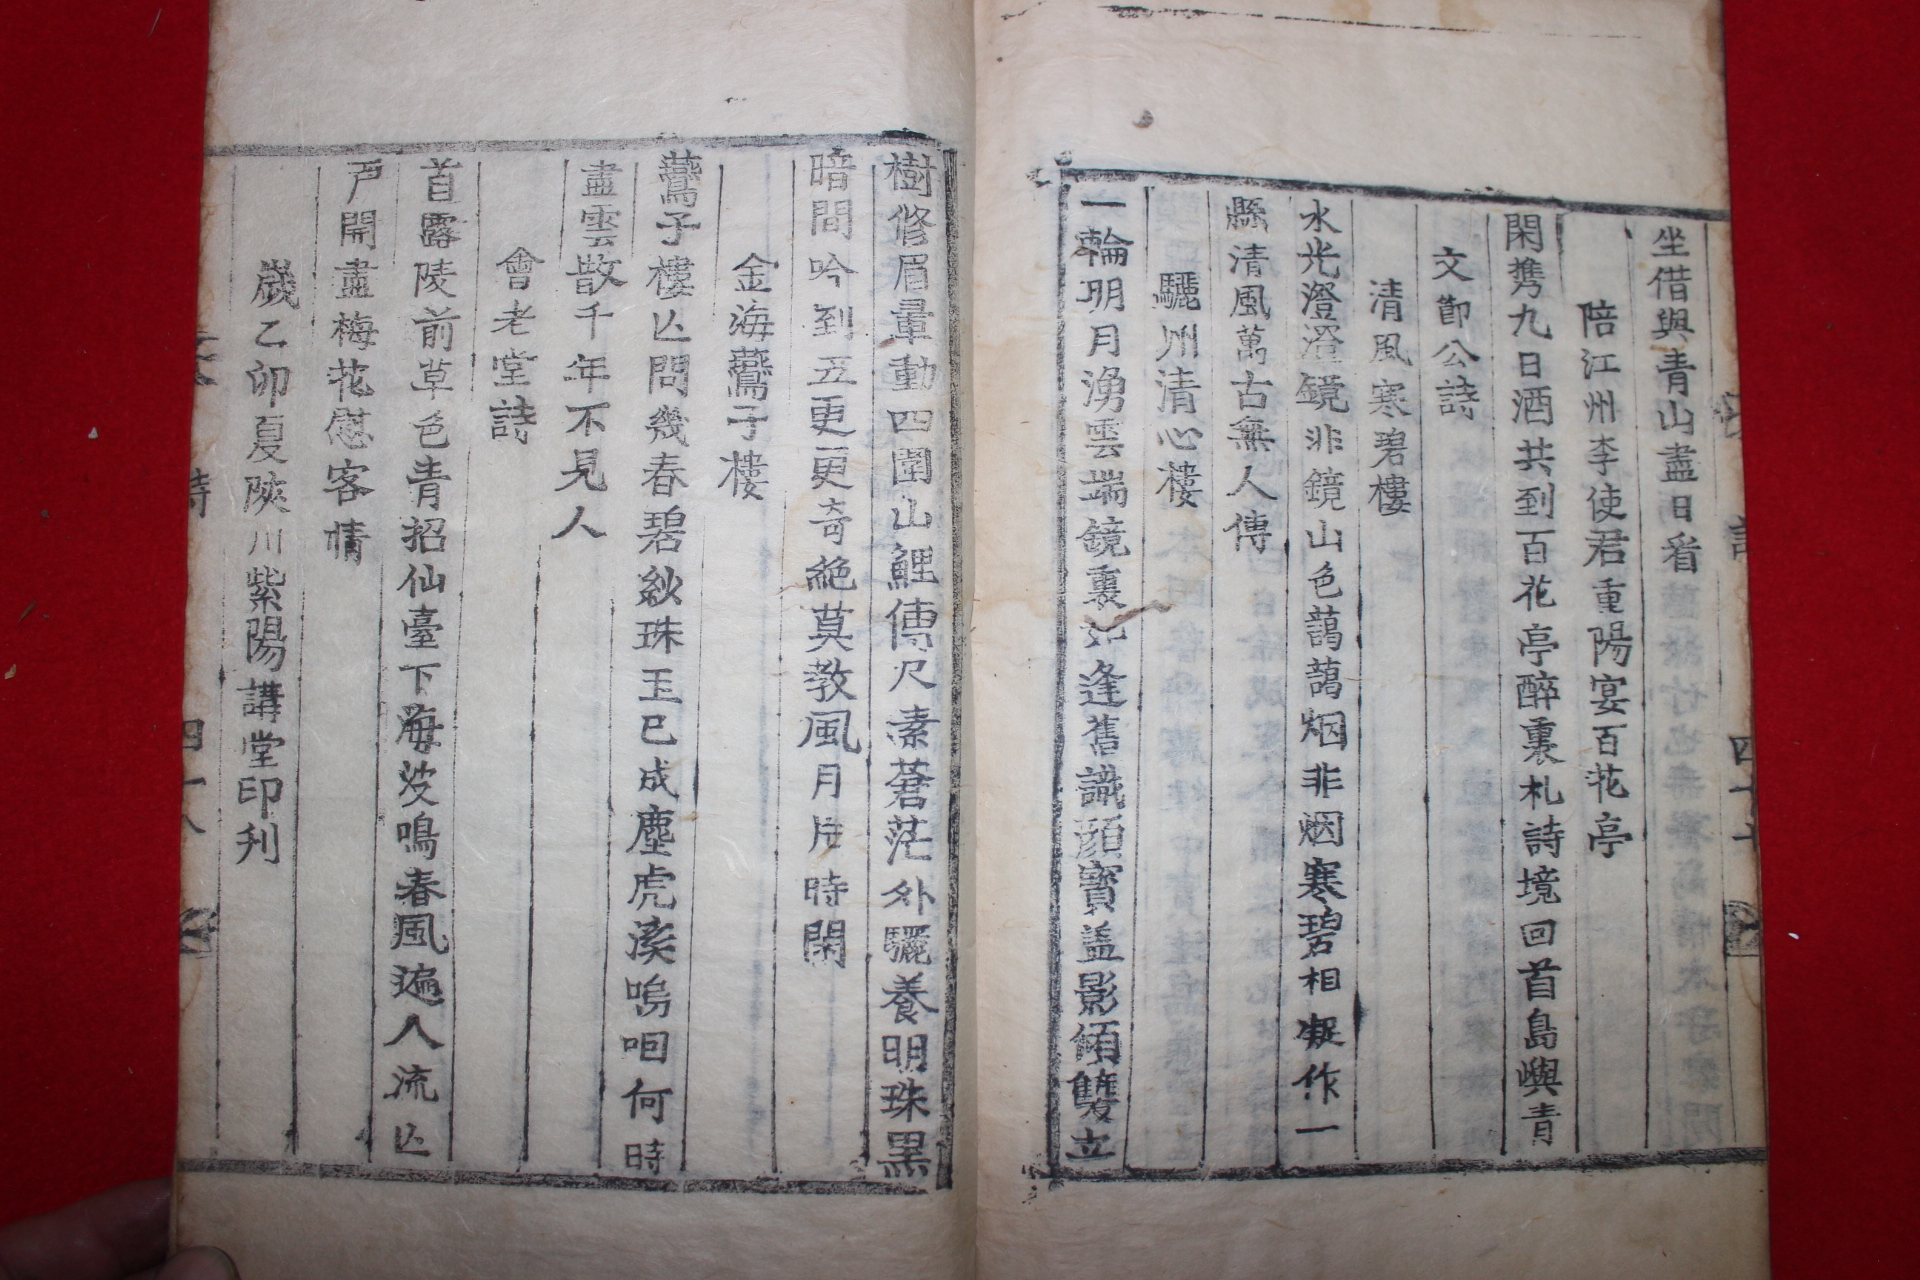 坐借與青山盡日看
陪江州李使君重陽宴百花亭
閑携九日酒共到百花亭醉裏札詩境回首島嶼青
文節公詩
清風寒碧樓
水光澄澄鏡非鏡山色藹藹烟非烟寒碧相凝作一
縣清風萬古無人傳
驪州清心樓
一輪明月湧雲端鏡裏如逢舊識顔寶盖影傾雙立
樹修眉暈動四圍山鯉傳尺素蒼茫外驪養明珠黑
暗間吟到五更更奇絶莫敎風月片時閑
金海鷰子樓
鷰子樓亾問幾春碧紗珠玉已成塵虎溪嗚咽何時
盡雲散千年不見人
會老堂詩
首露陵前草色青招仙臺下海波鳴春風遍人流亾
戸開盡梅花慰客情
歲乙卯夏陜川紫陽講堂印刋
詩
四十七
詩
四十八